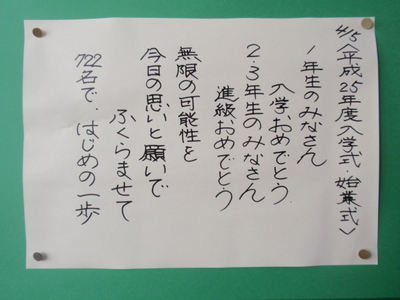 4/5〈平成25年度入学式・始業式〉
1年生のみなさん
入学おめでとう
2・3年生のみなさん
進級おめでとう
無限の可能性を
今日の思いと願いで
ふくらませて
722名で、はじめの一歩